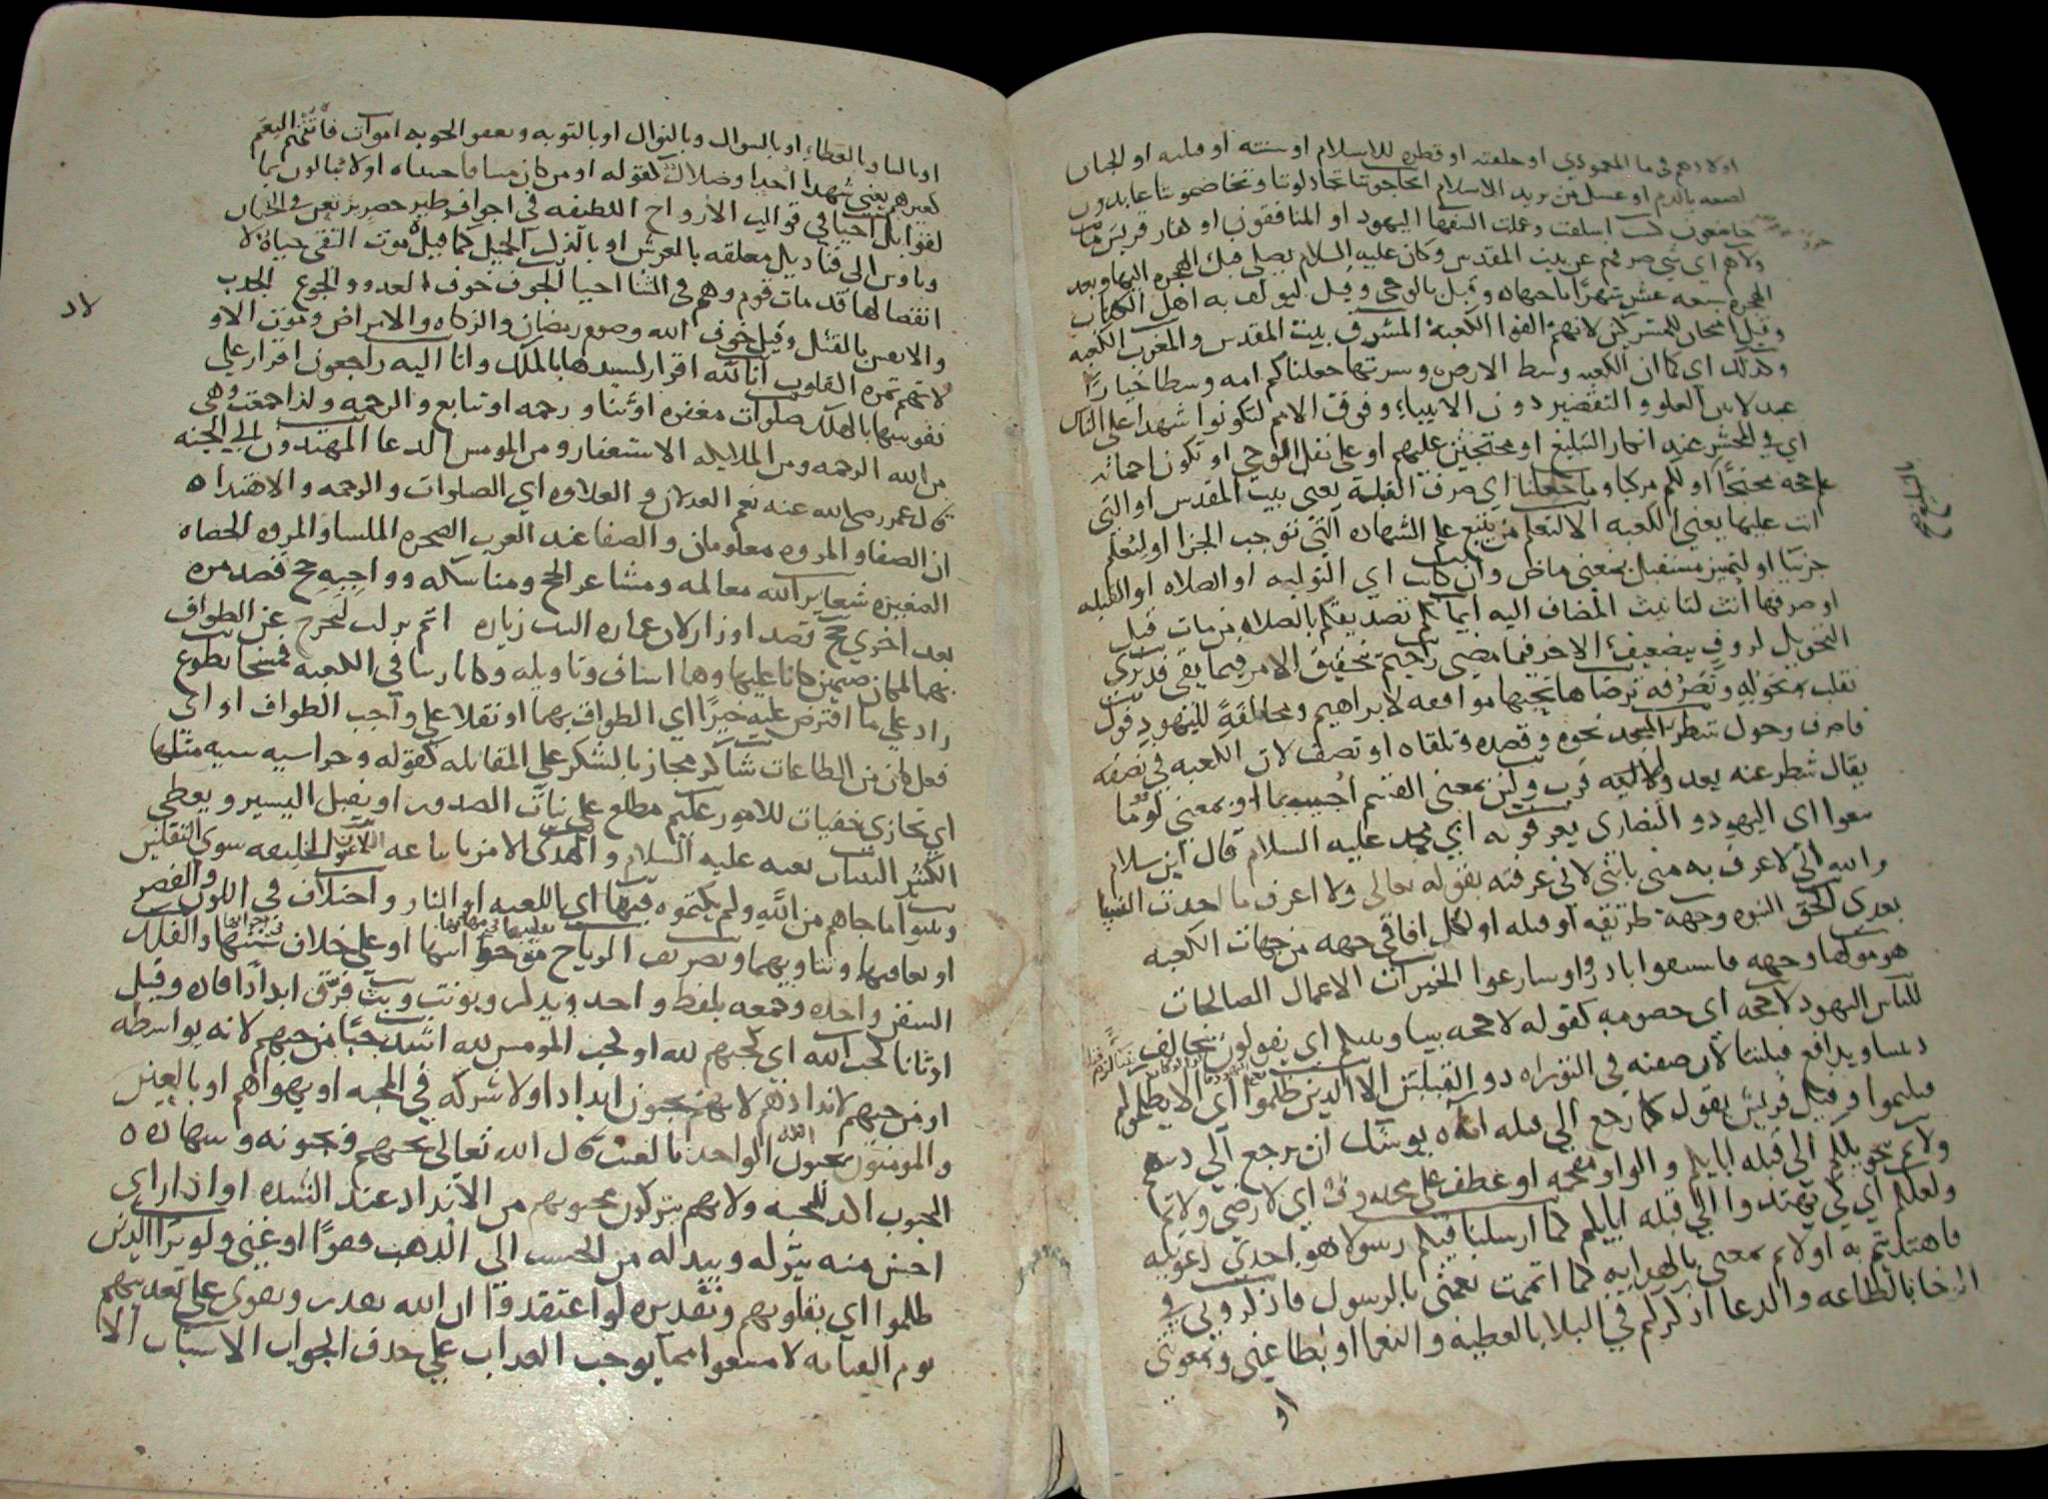 اولادهم في ما المعمودي او خلقته او فطره للاسلام او سنته او قبلته او الختان
لصبغه بالدم او غسل من يريد الاسلام اتحاجوننا تجادلوننا وتخاصموننا عابدون
خاضعون اسلفت وعملت السفها اليهود او المنافقون او كفار قريش ما
ولاهم اي شي صرفهم عن بيت المقدس وكان عليه السلام يصلي قبل الهجره اليها وبعد
الهجره سبعه عشر شهرا باجتهاده وقيل بالوحي وقيل ليولف به اهل الكتاب
وقيل امتحان للمشركين لانهم الفوا الكعبة المشرق بيت المقدس والمغرب الكعبه
وكذلك اي كما ان الكعبه وسط الارض وسرتها جعلناكم امه وسطا خيارا
عدلا بين الغلو والتقصير دون الانبياء وفوق الامم لتكونوا شهدا على الناس
اي في المحشر عند انكار التبليغ او محتجين عليهم او على نقل الوحي او تكون اجماعه
حجه محتجا او لكم مزكيا وما جعلنا اي صرف القبلة يعني بيت المقدس او التي
انت عليها يعني الكعبه الا لنعلم من يتبع علم الشهاده التي توجب الجزا او ليعلم
حزبنا او لتميز مستقبل بمعني ماض وان كانت اي التوليه او الصلاه او القبله
او صرفها أنث لتانيث المضاف اليه ايمانكم تصديقكم بالصلاه من مات قبل
التحويل لروف بضعيف الاخر فيما مضي رحيم بتحقيق الامر فيما بقي قد نرى
تقلب تحوله وتصرفه ترضاها تحبها موافقه لابراهيم ومخالفة لليهود فول
فاصرف وحول شطر المسجد نحوه وقصده وتلقاه او نصف لان الكعبه في نصفه
يقال شطر عنه بعد واليه قرب ولئن بمعنى القسم اجيب بما او بمعني لو
تبعوا اي اليهود والنصارى يعرفونه اي محمد عليه السلام قال ابن سلام
والله اني لاعرف به مني بابني لاني عرفته بقوله تعالى ولا اعرف ما احدثت النسا
بعدي الحق النبوه وجهة طريقه او قبله او لكل افاقي جهه من جهات الكعبه
هو موليها وجهه فاستبقوا بادروا وسارعوا الخيرات الاعمال الصالحات
للناس اليهود لا حجه اي خصومه كقوله لا حجه بيننا وبينكم اي يقولون يخالف
ديننا ويوافق قبلتنا لان صفته في التوراه ذو القبلتين الا الذين ظلموا اي الا يظلموكم
وقيل قريش يقول كما رجع الى قبله ابائه يوشك ان يرجع الى دينهم
ولاتم تحويلكم الى قبله ابايكم والواو مقحمه او عطف على محذوف اي لارضي ولاتم
ولعلكم اي كي تهتدوا الى قبله ابايكم كما ارسلنا فيكم رسولا هو احدي دعوتيه
فاهتديتم به او لاتم نعمتي بالهدايه كما اتممت نعمتي بالرسول فاذكروني في
الرخا بالطاعه والدعا اذكركم في البلا بالعطيه والنعما او بطاعتي ومعونتي
او
او بالثنا وبالعطاء او بالسوال وبالنوال او بالتوبه وبعفو الحوبه اموات فاتتهم النعم
كغيرهم يعني شهدا احد او ضلال كقوله او من كان ميتا فاحييناه او لا ينالون بما
لقوا بل احيا في قوالب الارواح اللطيفه في اجواف طير خضر تعرش في الجنان
وتاوي الى قناديل معلقه بالعرش او بالذكر الجميل كما قيل موت التقي حياة لا
انقضا لها قد مات قوم وهم في الثنا احيا الخوف خوف العدو والجوع الجدب
والانفس بالقتل وقيل خوف الله وصوم رمضان والزكاه والامراض وموت الاو
لانهم ثمره القلوب انا لله اقرار لسيدها بالملك وانا اليه راجعون اقرار على
نفوسها بالهلك صلوات مغفره او ثنا ورحمه او تتابع والرحمه ولذا جمعت وهي
من الله الرحمه ومن الملايكه الاستغفار ومن المومنين الدعا المهتدون الي الجنه
قال عمر رضي الله عنه نعم العدلان والعلاوه اي الصلوات والرحمه والاهتداه
ان الصفا والمروه معلومان والصفا عند العرب الصخره الملسا والمروه الحصاه
الصغيره شعاير الله معالمه ومشاعر الحج ومناسكه وواجبه حج قصد مره
بعد اخري حج قصد او زار لان عماره البيت زياره اثم نزلت لتحرج عن الطواف
بهما لمكان صنمين كانا عليها وهما اساف ونايله وكانا زنيا في الكعبه فمسخا تطوع
زاد على ما افترض عليه خيرا اي الطواف بهما او نقلا على واجب الطواف او اي
فعل كان من الطاعات شاكر مجاز بالشكر على المقابله كقوله وجزا سيئه سيئه مثلها
اي يجازي خفيات للامور عليم مطلع على نيات الصدور او يقبل اليسير ويعطي
الكثير البينات نعته عليه السلام والهدى الامر باتباعه اللاعنون الخليقه سوى الثقلين
وبينوا ما جاهم من الله ولم يكتموه فيها اي اللعنه او النار واختلاف في اللون والقصر
او تعاقبها وتناوبهما وتصريف الرياح تقليبها في مهابها او على خلاف سننها والفلك
السفن واحده وجمعه بلفظ واحد ويذكر ويونث وبث فرق اندادا قاده وقيل
اوثانا كحب الله اي كحبهم لله او كحب المومنين لله اشد حبا من حبهم لانه بواسطه
او من حبهم لاندادهم لانهم يحبون اندادا ولا شركه في المحبه او يهواهم او بالغيب
والمومنون يحبون الله الواحد بالغيب قال الله تعالى يحبهم ويحبونه وشهاده
المحبوب الذ للمحبه ولانهم يتركون محبوبهم من الانداد عند الشده او اذا راى
احسن منه يتركه ويبدله من الخشب الى الذهب فهوا او غني ولو ترا الذين
ظلموا اي بقلوبهم وتقديره لو اعتقدوا ان الله يقدر ويقوى على تعذيبهم
يوم القيامه لامتنعوا مما يوجب العذاب على حذف الجواب الاسباب الا